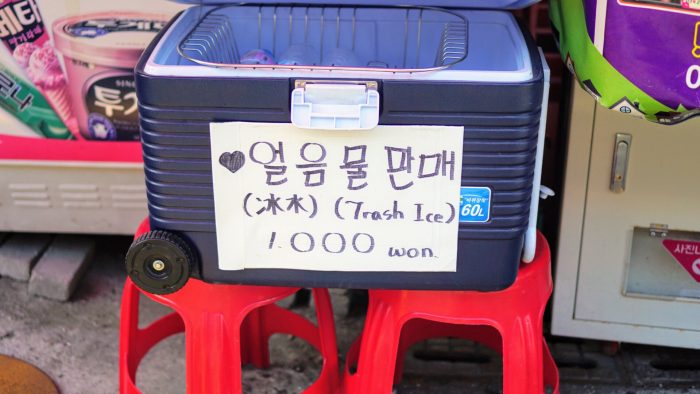 ♥얼음물판매
(冰水) (Trash Ice)
1.000 won.
60L
투게
사진